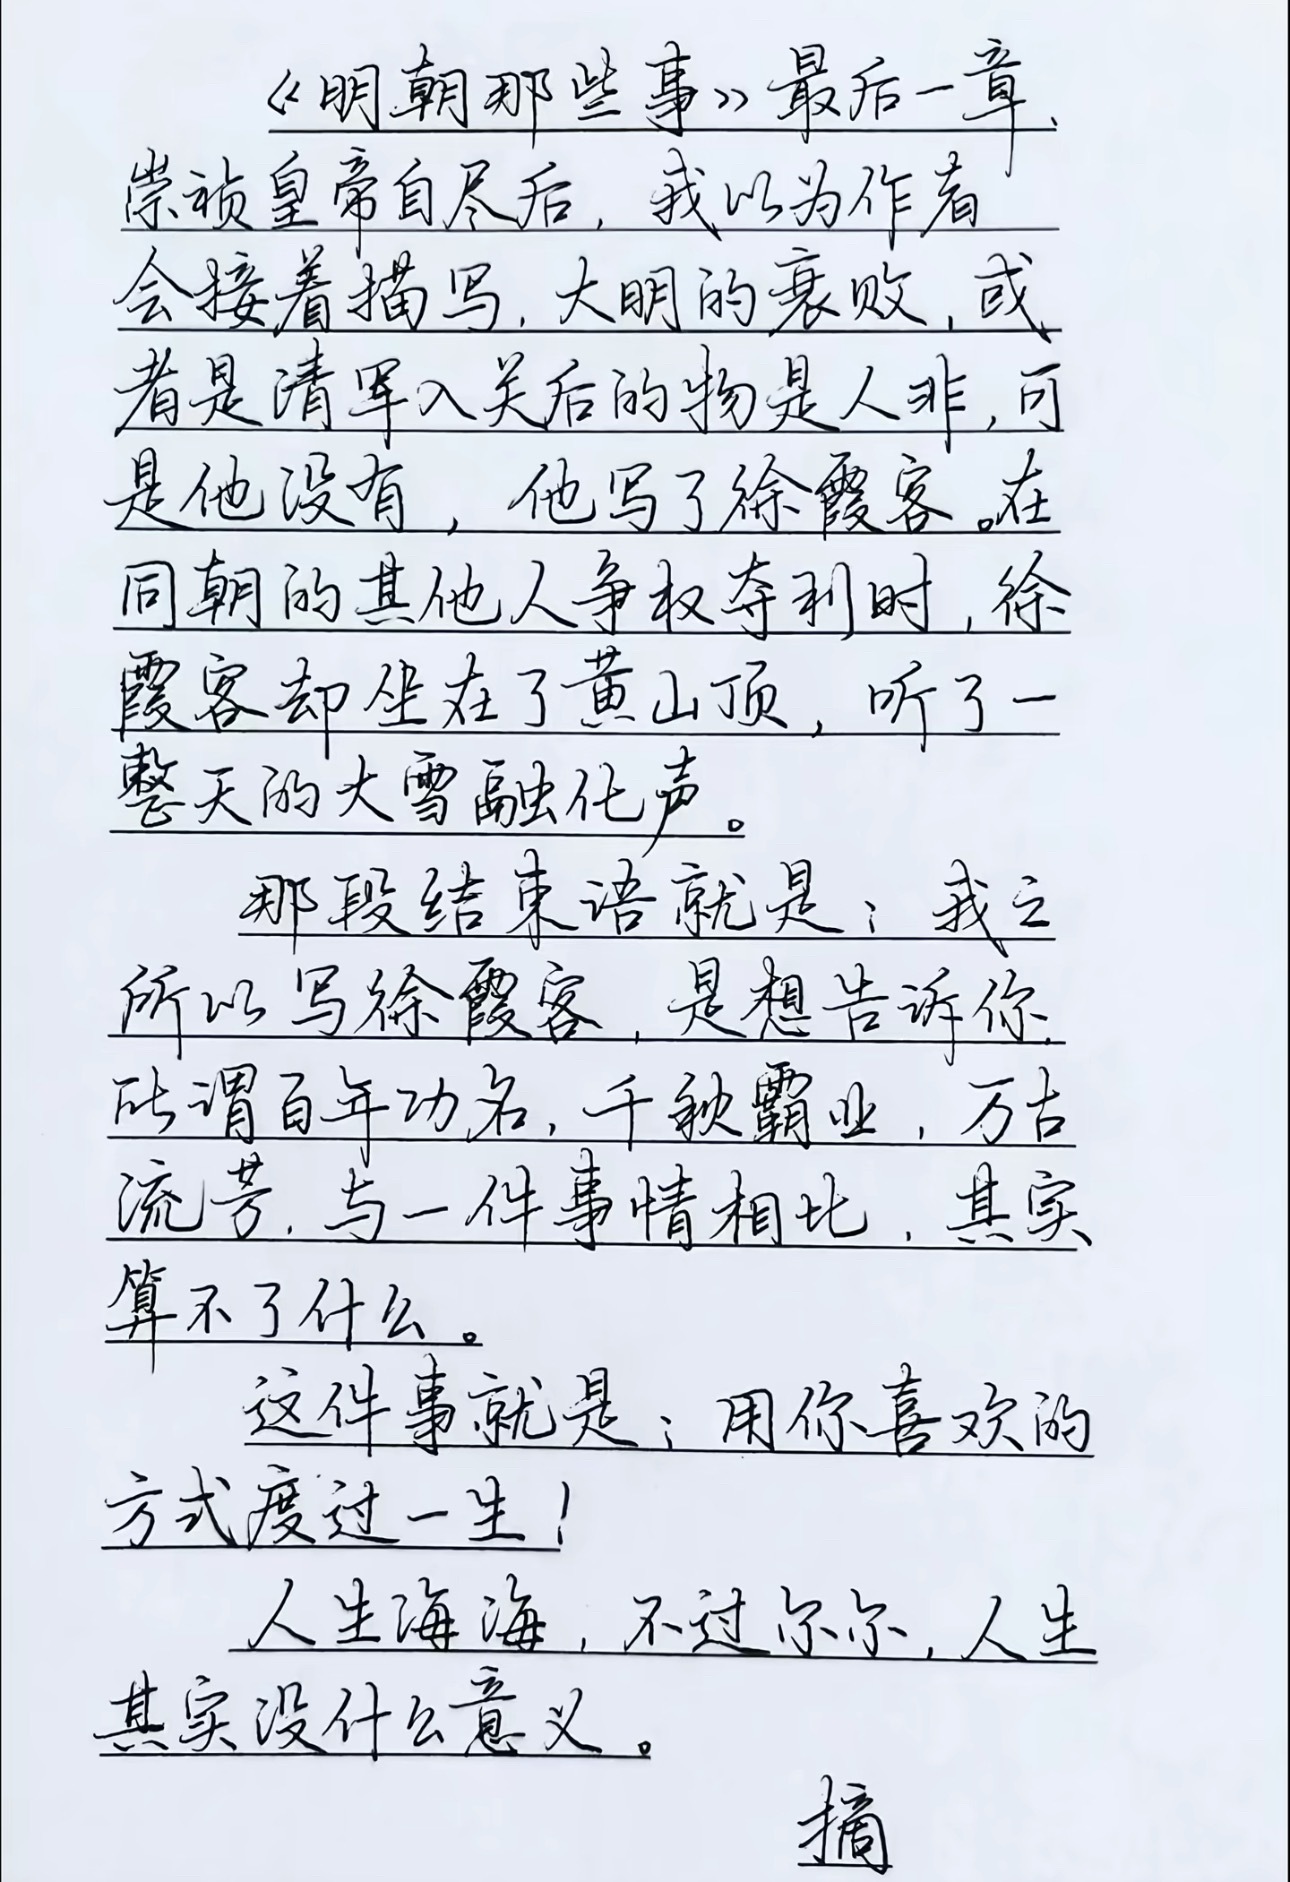 《明朝那些事》最后一章，
崇祯皇帝自尽后，我以为作者
会接着描写，大明的衰败，或
者是清军入关后的物是人非，可
是他没有，他写了徐霞客。在
同朝的其他人争权夺利时，徐
霞客却坐在了黄山顶，听了一
整天的大雪融化声。
那段结束语就是：我之
所以写徐霞客，是想告诉你，
所谓百年功名，千秋霸业，万古
流芳，与一件事情相比，其实
算不了什么。
这件事就是：用你喜欢的
方式度过一生！
人生海海，不过尔尔，人生
其实没什么意义。
摘